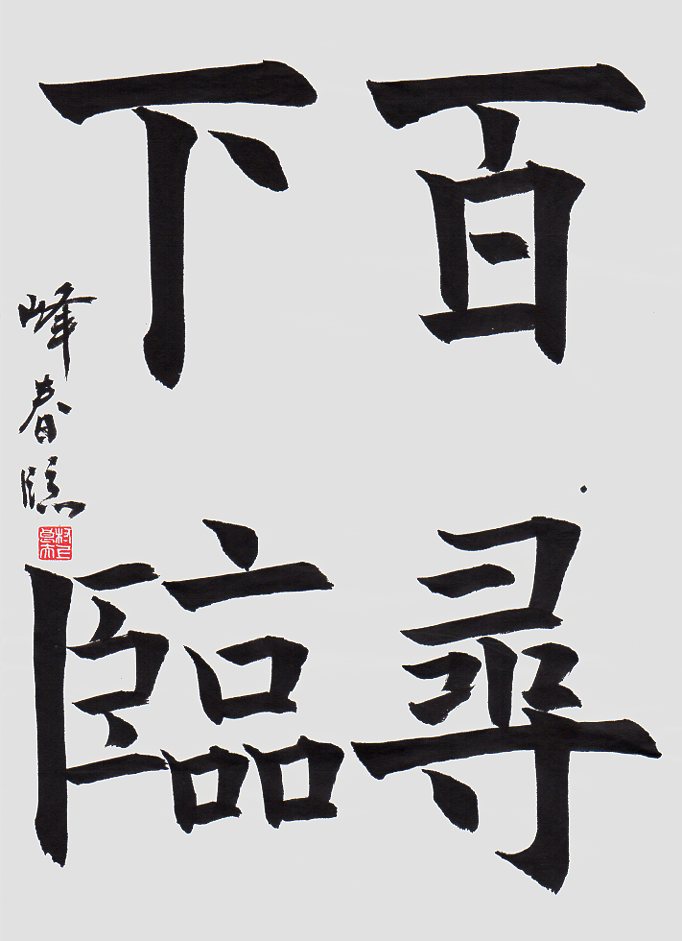 百尋
下臨
峰春臨